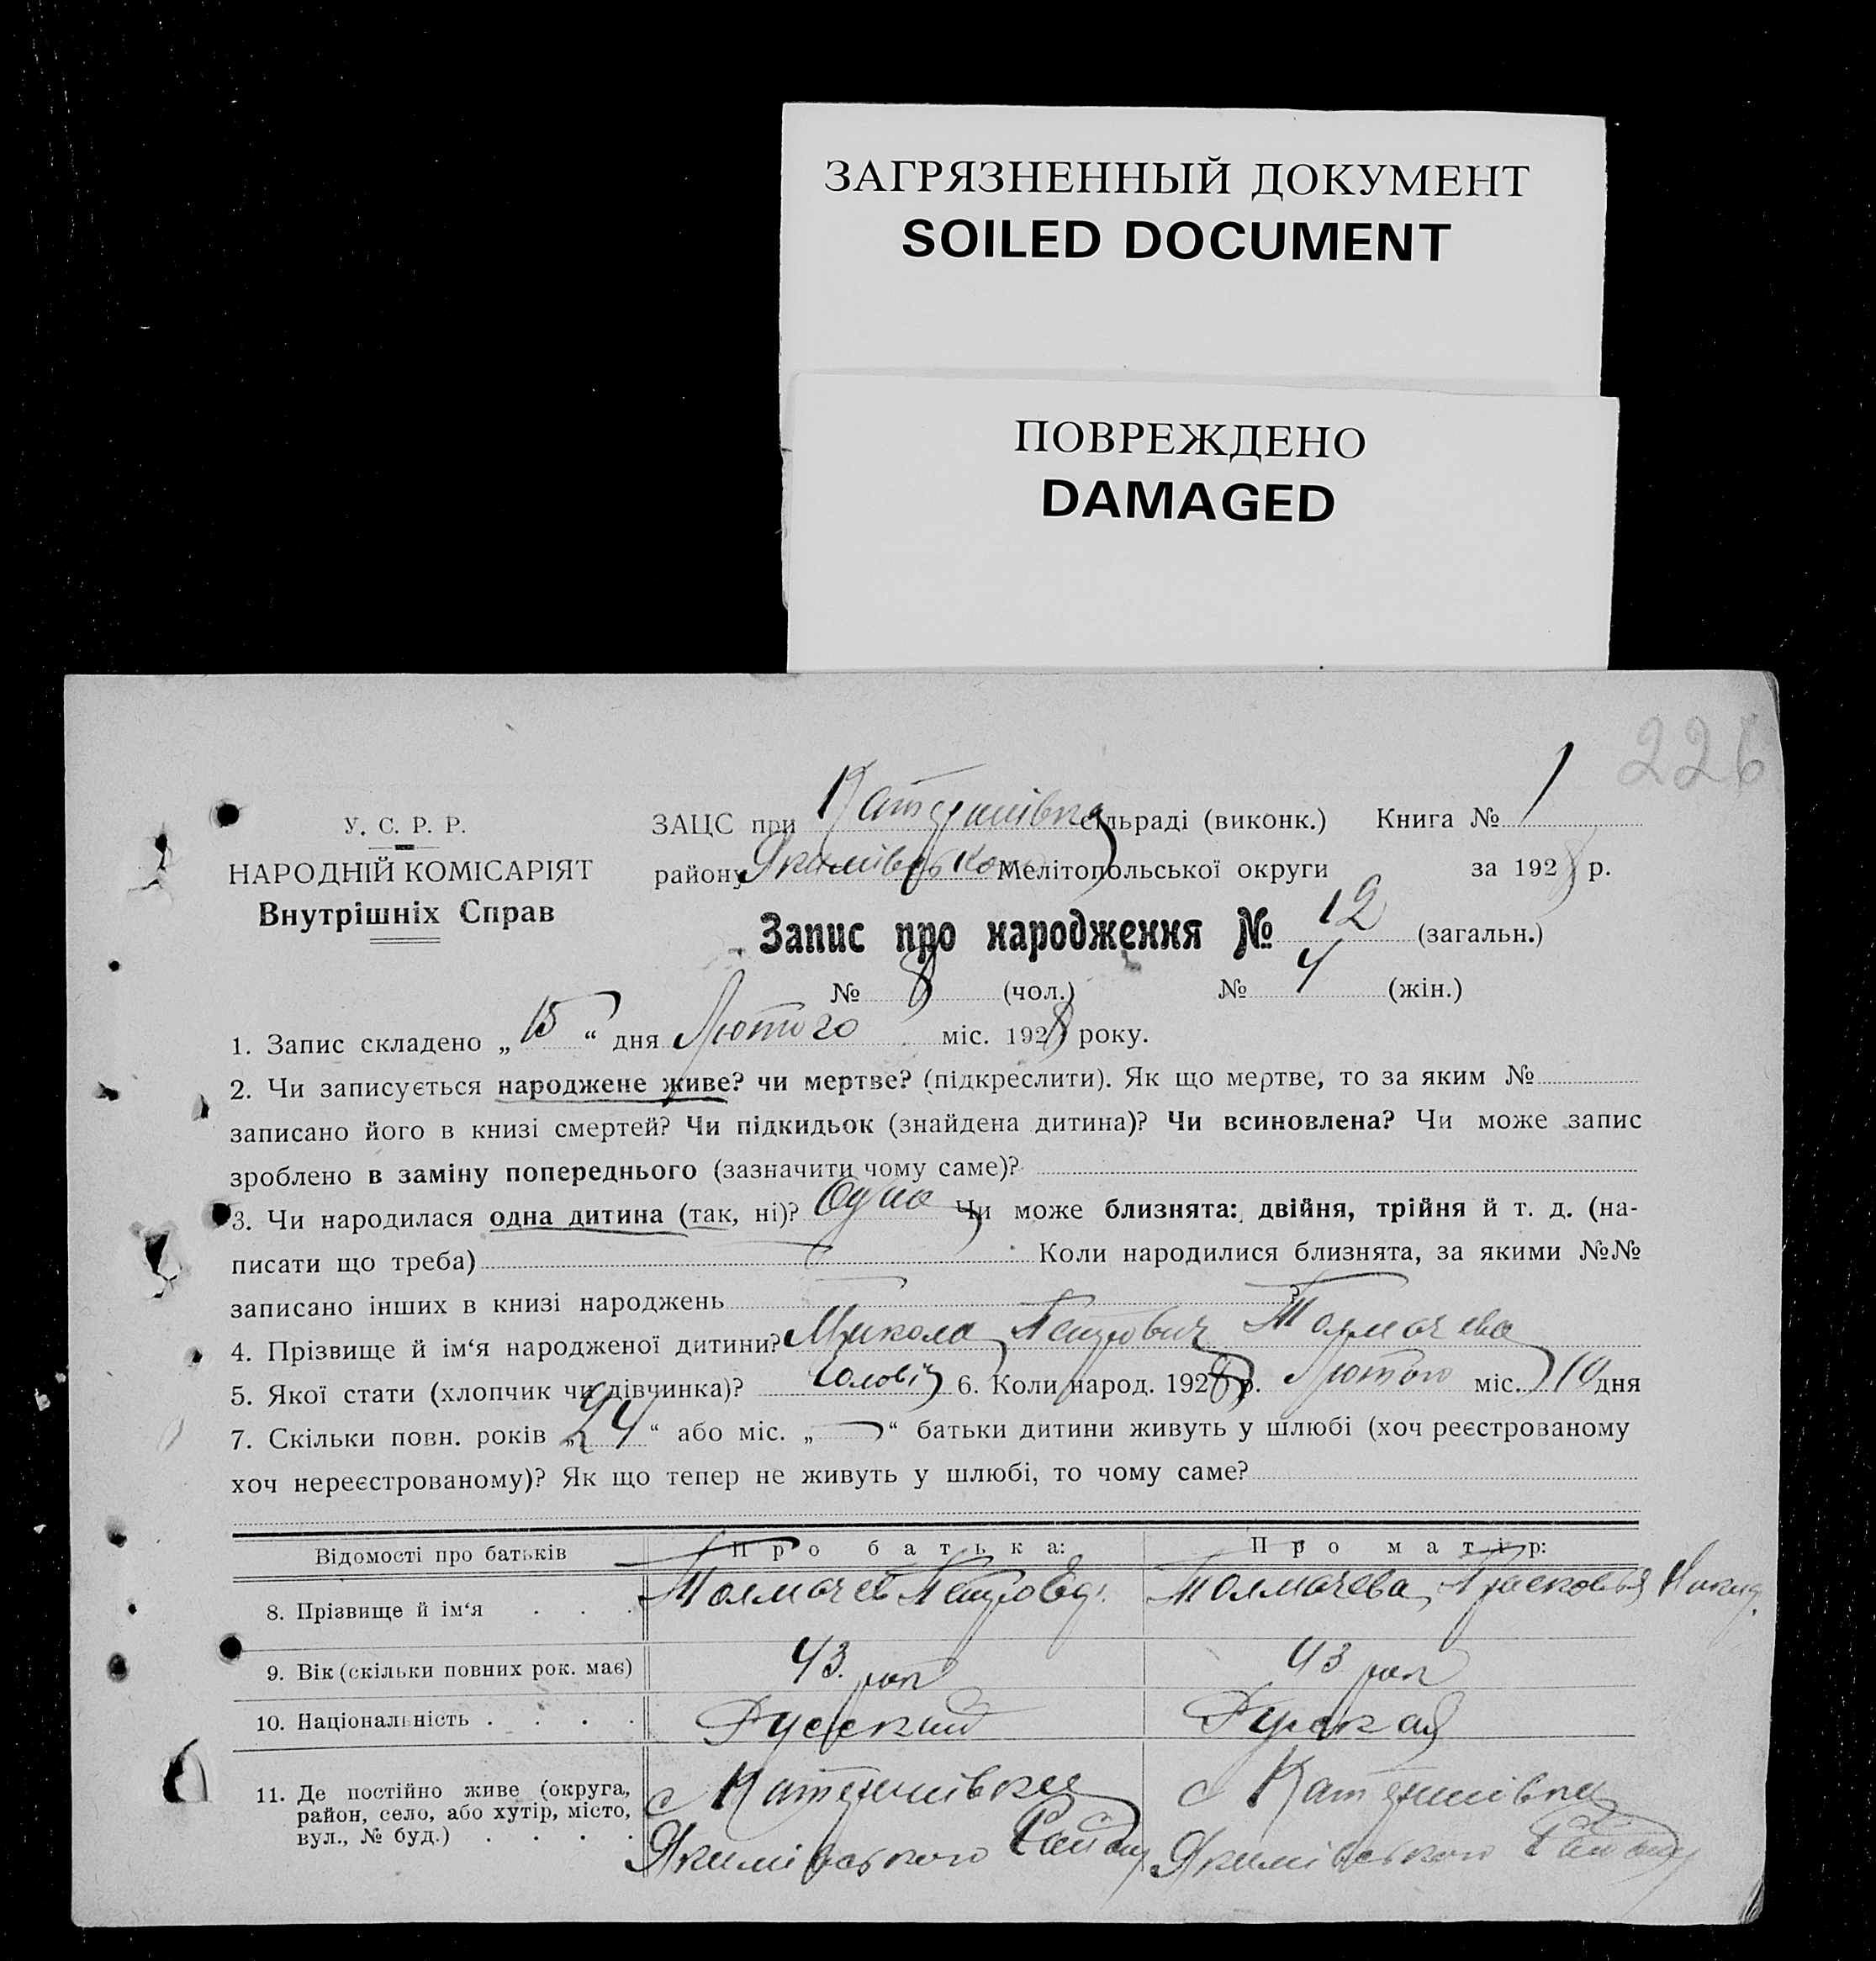 ЗАГРЯЗНЕННЫЙ ДОКУМЕНТ
SOILED DOCUMENT
ПОВРЕЖДЕНО
DAMAGED
226
У. С. Р. Р.
НАРОДНІЙ КОМІСАРІЯТ
Внутрішніх Справ
ЗАЦС при сільраді (виконк.) Книга № 1
району Якимівського Мелітопольської округи за 1928 р.
Запис про народження № 12 (загальн.)
№ 8 (чол.) № 4 (жін.)
1. Запис складено „15“ дня Лютого міс. 1928 року.
2. Чи записується народжене живе? чи мертве? (підкреслити). Як що мертве, то за яким №
записано його в книзі смертей? Чи підкидьок (знайдена дитина)? Чи всиновлена? Чи може запис
зроблено в заміну попереднього (зазначити чому саме)?
3. Чи народилася одна дитина (так, ні)? Одна Чи може близнята: двійня, трійня й т. д. (на-
писати що треба) Коли народилися близнята, за якими №№
записано інших в книзі народжень ?
4. Прізвище й ім‘я народженої дитини? Микола Петрович Толмачева
5. Якої стати (хлопчик чи дівчинка)? 6. Коли народ. 1928 р. Лютого міс. 10 дня
7. Скільки повн. років „24“ або міс. „ “ батьки дитини живуть у шлюбі (хоч реєстрованому
хоч нереєстрованому)? Як що тепер не живуть у шлюбі, то чому саме?
Відомості про батьків Про батька: Про матір:
8. Прізвище й ім‘я . . . Толмачев Толмачева
9. Вік (скільки повних рок. має) 43 рок 43 рок
10. Національність . . . . Русский Руская
11. Де постійно живе (округа,
район, село, або хутір, місто,
вул., № буд.) . . . .
с с
Якимівського Району Якимівського Району